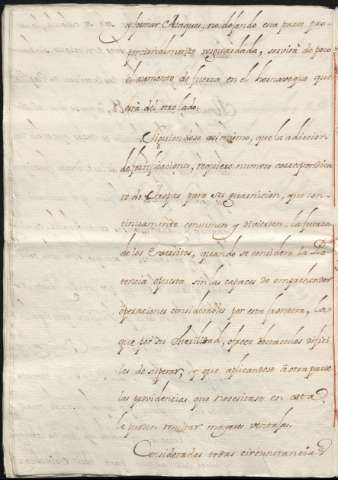 formar Ataques, no dejando esta parte pro-
porcionalmente resguardada, servirá de poco
el aumento de fuerza en el
del otro lado.
Siguiendose asimismo, que la adicion
de fortificaciones, requiere numero correspondien
te de Tropas para su guarnicion, que con-
tinuamente consumen y la fuerza
de los Exercitos, quando se considera la Po
tencia opuesta sin las capaces de emprender
operaciones considerables por esta frontera, la
que por su esterilidad, ofrece obstaculos dificì
les de superar, y que aplicandose à otra parte
las providencias que necesitaso en esta,
le pueden resultar mayores ventajas.
Consideradas todas circunstancias